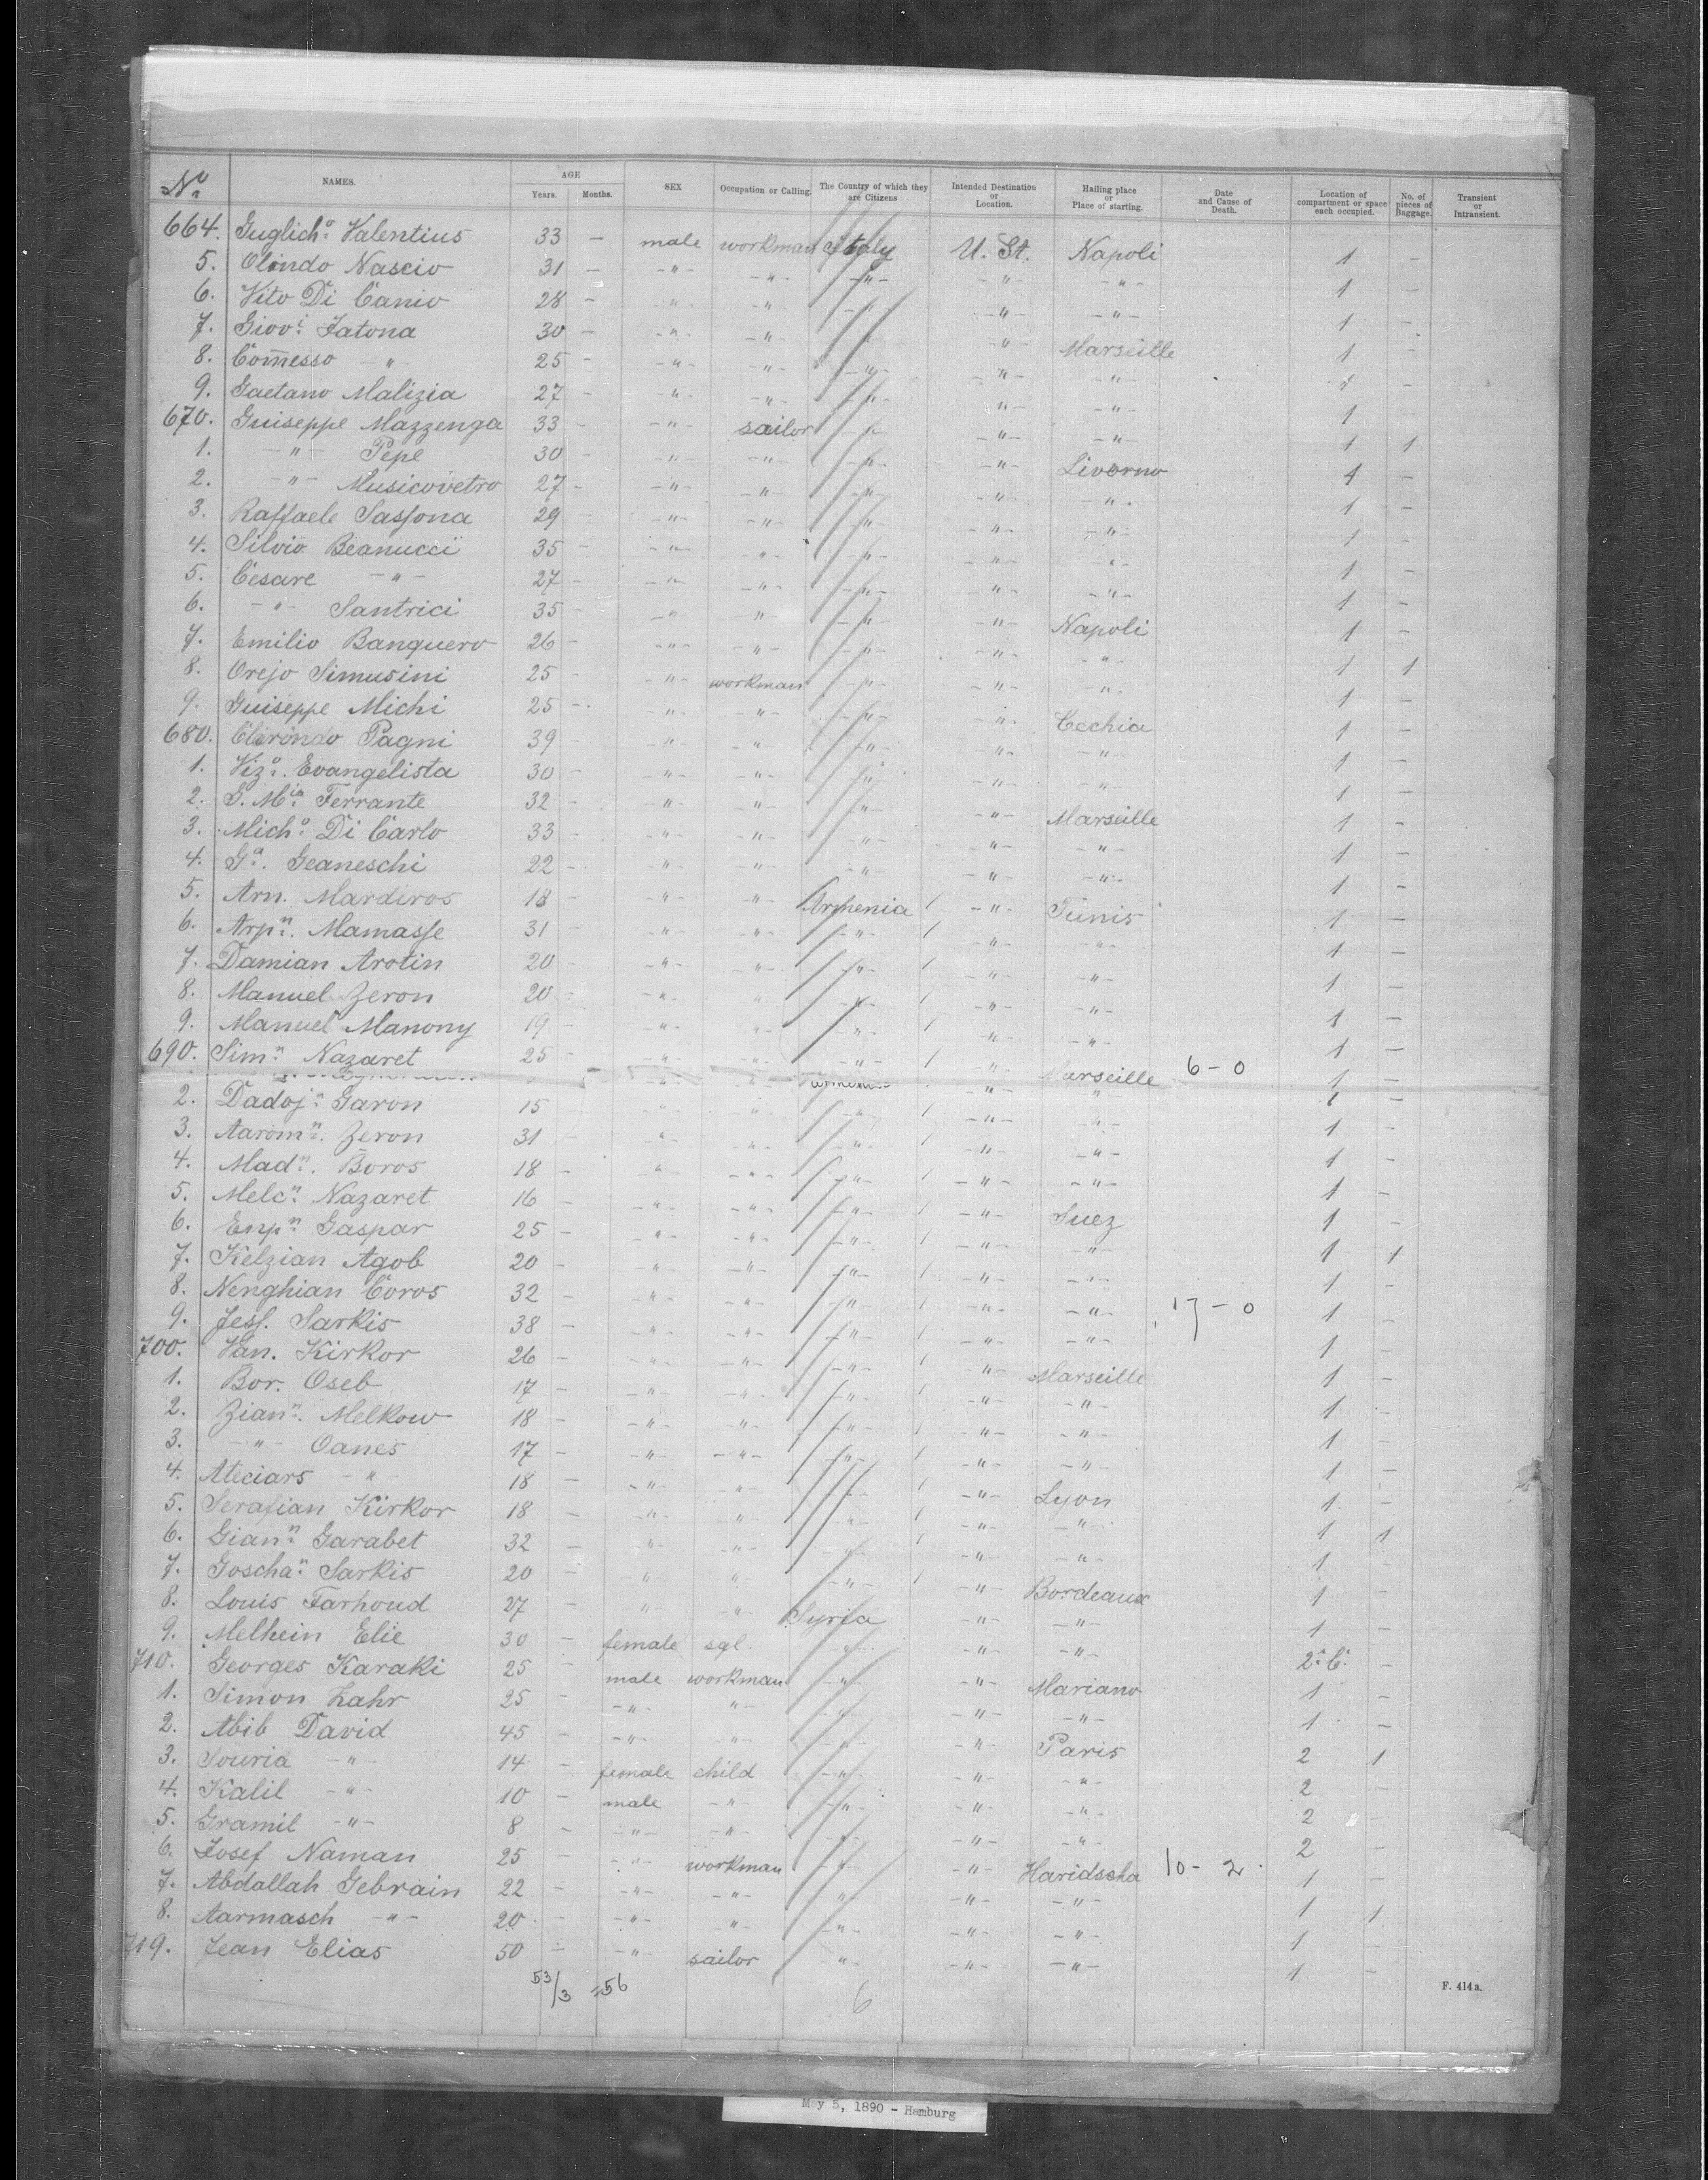 Nº NAMES. AGE Years. Months. SEX Occupation or Calling. The Country of which they are Citizens Intended Destination or Location. Hailing place or Place of starting. Date and Cause of Death. Location of compartment or space each occupied. No. of pieces of Baggage. Transient or Intransient.
664. Guglich.º Valentius 33 – male workman Italy U. St. Napoli 1 –
5. Olindo Nascio 31 – -"- -"- -"- -"- -"- 1 –
6. Vito Di Canio 28 – -"- -"- -"- -"- -"- 1 –
7. Giov.i Fatona 30 – -"- -"- " -"- Marseille 1 –
8. Com̅esso " 25 – -"- -"- -"- -"- -"- 1 –
9. Gaetano Malizia 27 – -"- -"- -"- "- -"- 1 –
670. Guiseppe Mazzenga 33 – -"- sailor -"- -"- -"- 1 1
1. -"- Pepe 30 – -"- -"- -"- -"- Livorno 1 –
2. -"- Musicovetro 27 – -"- -"- -"- -"- -"- 1 –
3. Raffaele Sassona 29 – -"- -"- -"- -"- -"- 1 –
4. Silvio Beanucci 35 – -"- -"- -"- -"- -"- 1 –
5. Cesare -"- 27 – -"- -"- -"- -"- -"- 1 –
6. -"- Santrici 35 – -"- -"- -"- -"- Napoli 1 –
7. Emilio Banquero 26 – -"- -"- -"- -"- -"- 1 1
8. Orejo Simusini 25 – -"- workman -"- -"- -"- 1 –
9. Guiseppe Michi 25 – -"- -"- -"- -"- Cechia 1 –
680. Clorindo Pagni 39 – -"- -"- -"- -"- -"- 1 –
1. Viz.º Evangelista 30 – -"- -"- -"- -"- -"- 1 –
2. G. M.ia Ferrante 32 – -"- -"- -"- -"- Marseille 1 –
3. Mich.º Di Carlo 33 – -"- -"- -"- -"- -"- 1 –
4. G.a Geaneschi 22 – -"- -"- -"- -"- -"- 1 –
5. Arn. Mardiros 18 – -"- -"- Armenia -"- Tunis 1 –
6. Arp.n Mamasse 31 – -"- -"- -"- -"- -"- 1 –
7. Damian Arotin 20 – -"- -"- -"- -"- -"- 1 –
8. Manuel Zeron 20 – -"- " -"- -"- -"- 1 –
9. Manuel Manony 19 – -"- -"- -"- -"- -"- 1 –
690. Sim.n Nazaret 25 – -"- -"- -"- -"- Marseille 6-0 1 –
2. Dadoj.n Garon 15 " " -"- -"- -"- 1 –
3. Aarom.n Zeron 31 – " " -"- -"- -"- 1 –
4. Mad.n Boros 18 – " -"- -"- -"- -"- 1 –
5. Melc.n Nazaret 16 – -"- -"- -"- -"- Suez 1 –
6. Enp.n Gaspar 25 – -"- -"- -"- -"- -"- 1 1
7. Kelzian Agob 20 – -"- -"- -"- -"- -"- 1 –
8. Nenghian Coros 32 – -"- -"- -"- -"- -"- 17-0 1 –
9. Jess. Sarkis 38 – -"- -"- -"- -"- -"- 1 –
700. Van. Kirkor 26 – -"- -"- -"- -"- Marseille 1 –
1. Bor. Oseb 17 – -"- -"- -"- -"- -"- 1 –
2. Zian.n Melkow 18 – -"- -"- -"- -"- -"- 1 –
3. -"- Oanes 17 – -"- -"- -"- -"- -"- 1 –
4. Ateciars -"- 18 – -"- -"- -"- -"- Lyon 1 –
5. Serafian Kirkor 18 – -"- -"- -"- -"- -"- 1 1
6. Gian.n Garabet 32 – " -"- -"- -"- -"- 1 –
7. Goscha.n Sarkis 20 – " " -"- -"- Bordeaux 1 –
8. Louis Farhoud 27 – " -"- Syria -"- -"- 1 –
9. Melhein Elie 30 – female sgl. -"- -"- -"- 2.C. –
710. Georges Karaki 25 – male workman -"- -"- Mariano 1 –
1. Simon Zahr 25 – -"- " -"- -"- -"- 1 –
2. Abib David 45 – -"- " -"- -"- Paris 2 1
3. Souria -"- 14 – female child -"- -"- -"- 2 –
4. Kalil -"- 10 – male -"- -"- -"- -"- 2 –
5. Gramil -"- 8 – -"- -"- -"- -"- -"- 2 –
6. Josef Naman 25 – -"- workman -"- -"- Haridscha 10-2 1 –
7. Abdallah Gebrain 22 – -"- -"- -"- -"- -"- 1 1
8. Aarmasch -"- 20 – -"- -"- -"- -"- -"- 1 –
719. Jean Elias 50 – -"- sailor -"- -"- -"- 1 –
53/3 =56 6
F. 414a.
May 5, 1890 - Hamburg